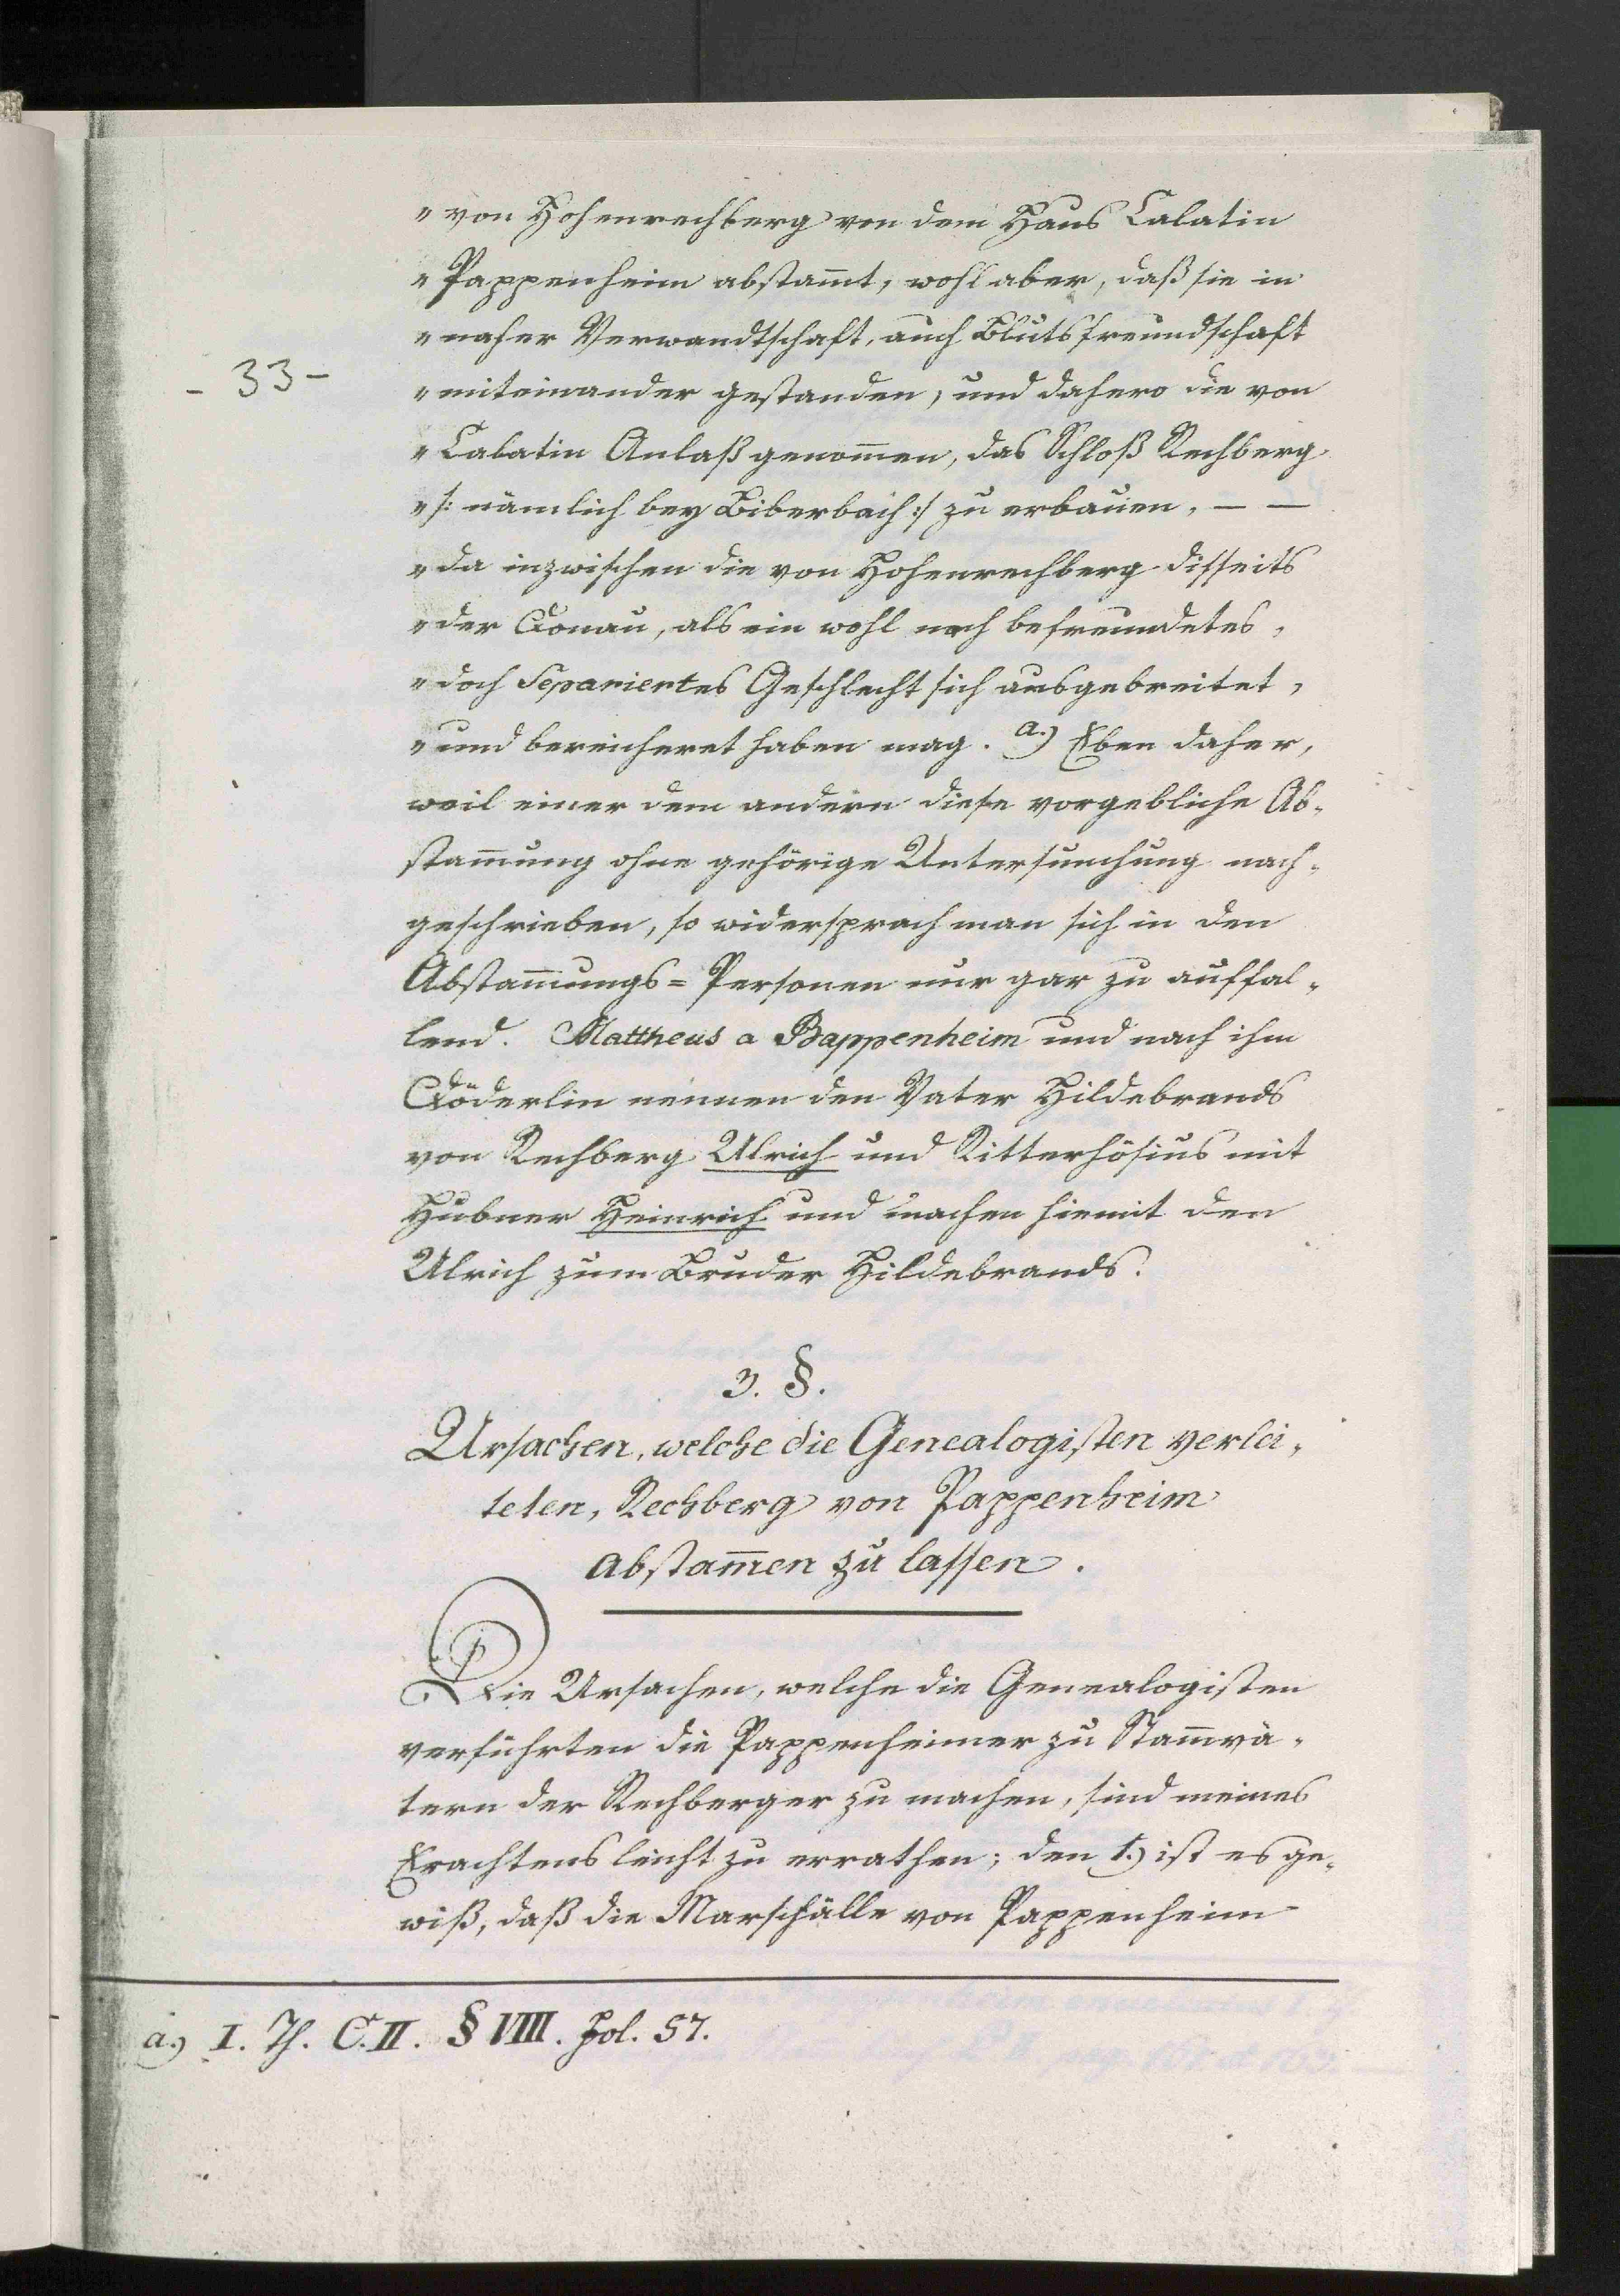 „ von Hohenrechberg von dem Haus Calatin
„ Pappenheim abstam̄t, wohl aber, daß sie in
„ naher Verwandtschaft, auch Blutsfreundschaft
- 33 -
„ miteinander gestanden, und dahero die von
„ Calatin Anlaß genom̄en, das Schloß Rechberg
„ /: nämlich bey Biberbach :/ zu erbauen, — —
„ da inzwischen die von Hohenrechberg disseits
„ der Donau, als ein wohl noch befreundetes,
„ doch Separiertes Geschlecht sich ausgebreitet,
„ und bereicheret haben mag. a.) Eben daher,
weil einer dem andern diese vorgebliche Ab-
stam̄ung ohne gehörige Untersuchung nach-
geschrieben, so widersprach man sich in den
Abstam̄ungs=Personen nur gar zu auffal-
lend. Mattheus a Bappenheim und nach ihm
Döderlin nennen den Vater Hildebrands
von Rechberg Ulrich und Ritterhösius mit
Hubner Heinrich und machen hiemit den
Ulrich zum Bruder Hildebrands.
3. §.
Ursachen, welche die Genealogisten verlei-
teten, Rechberg von Pappenheim
abstam̄en zu lassen.
Die Ursachen, welche die Genealogisten
verführten die Pappenheimer zu Stam̄vä-
tern der Rechberger zu machen, sind meines
Erachtens leicht zu errathen; den 1.) ist es ge-
wiß, daß die Marschälle von Pappenheim
a.) I. Th. C. II. § VIII. Fol. 57.